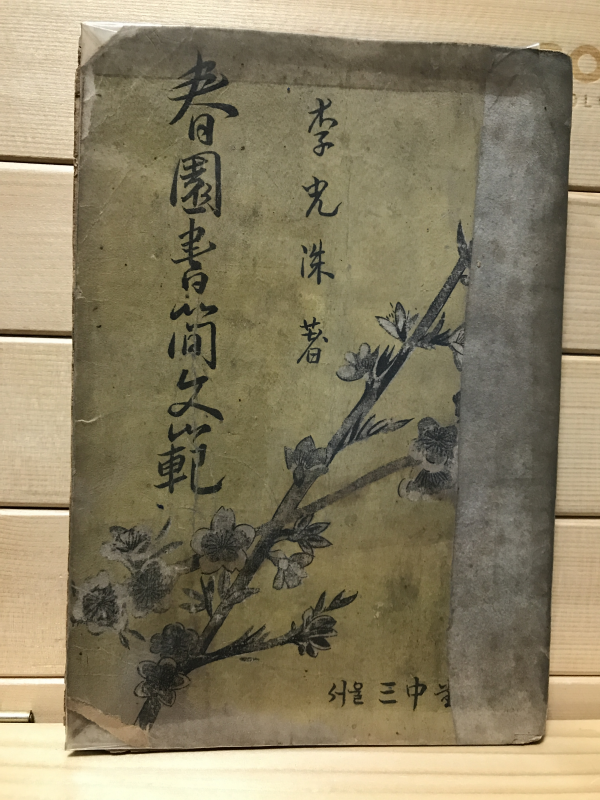 李光洙 著
春園書簡文範
서울 三中